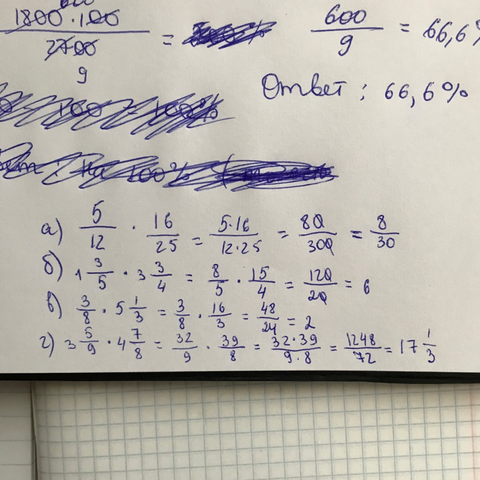 1800·100 / 2700 = 600 / 9 = 66,6%
9
Ответ: 66,6%
100 100%
на 100%
а) 5/12 · 16/25 = 5·16/12·25 = 80/300 = 8/30
б) 1 3/5 · 3 3/4 = 8/5 · 15/4 = 120/20 = 6
в) 3/8 · 5 1/3 = 3/8 · 16/3 = 48/24 = 2
г) 3 5/9 · 4 7/8 = 32/9 · 39/8 = 32·39/9·8 = 1248/72 = 17 1/3